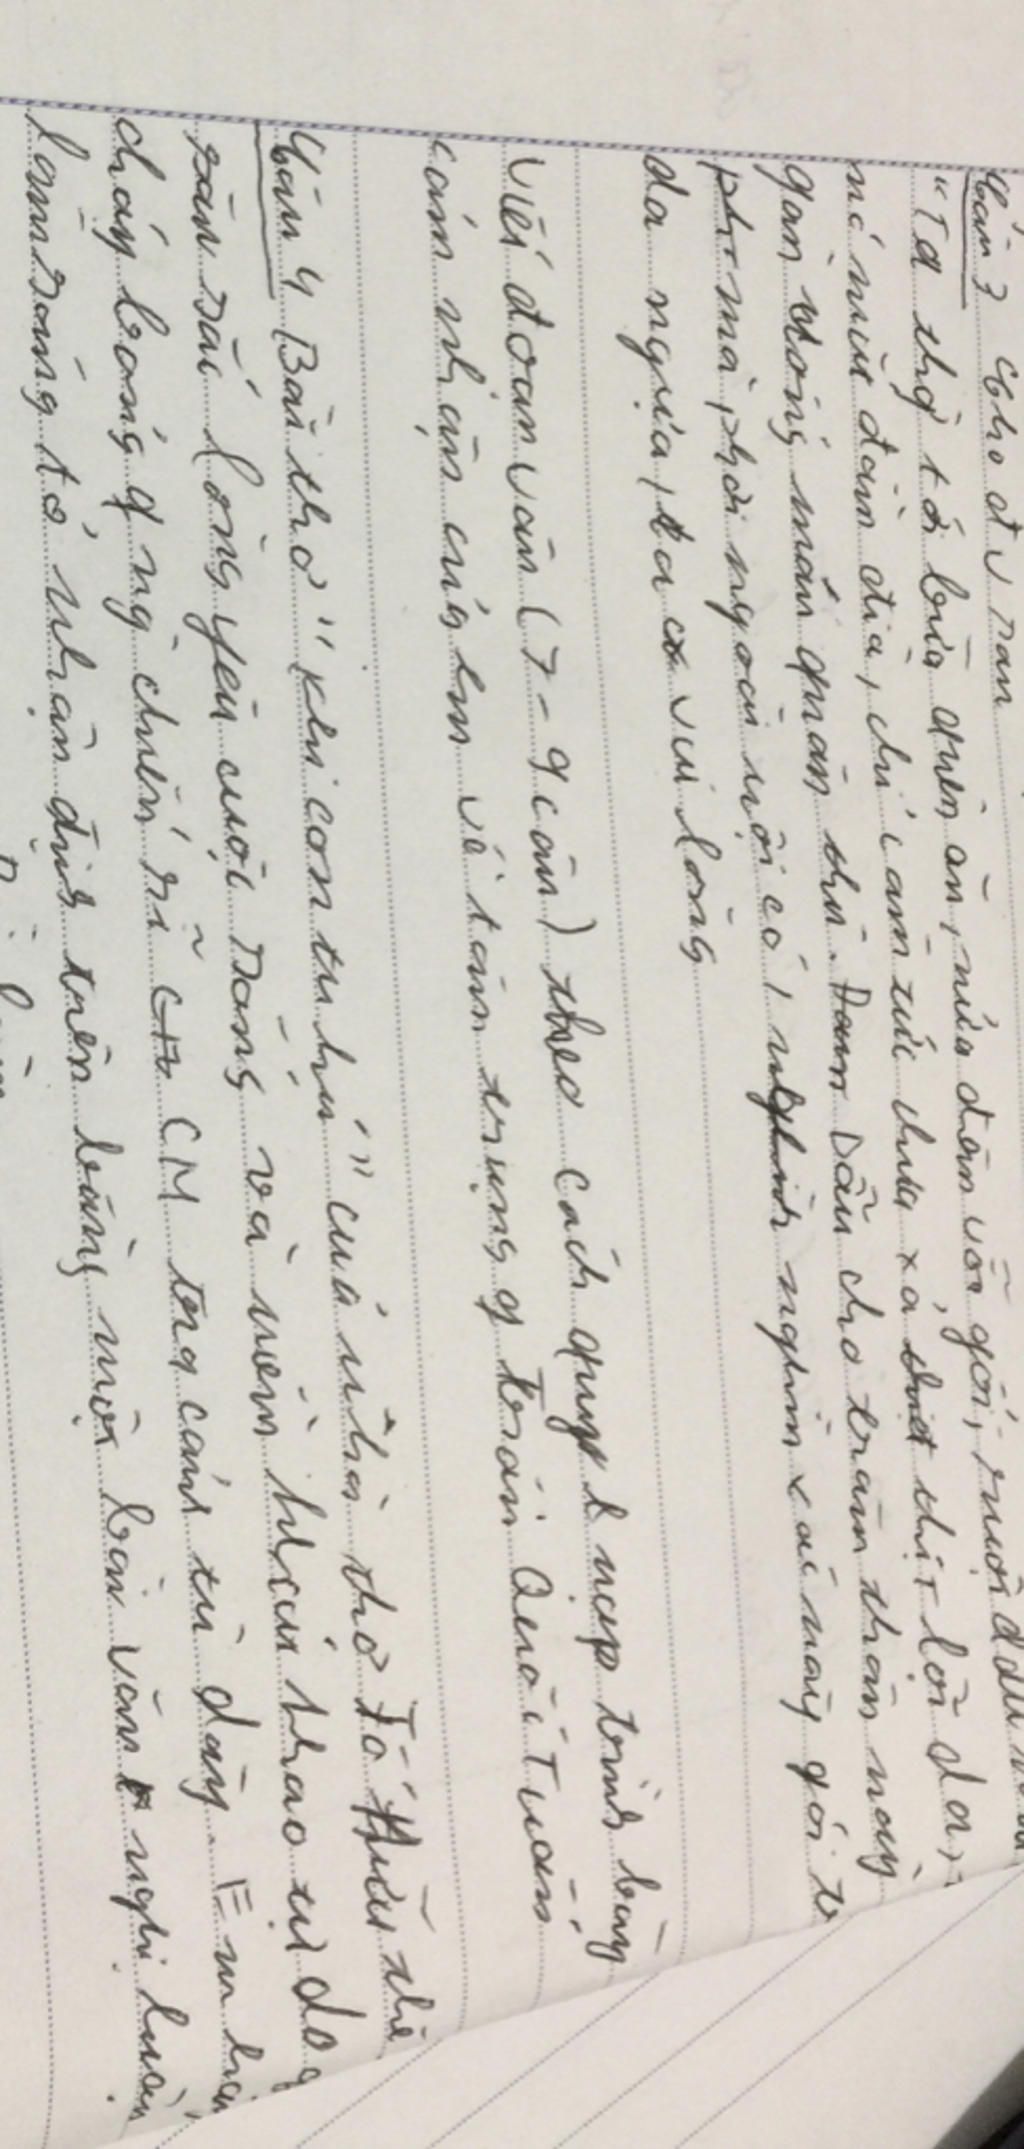 Câu 3 Cho đv sau
“Ta thg tới bữa quên ăn, nửa đêm vỗ gối, ruột đau
nc mắt đầm đìa, chỉ căm tức chưa xả thịt lột da,
gan uống máu quân thù. Dẫu cho trăm thân này
phơi , nội cỏ, nghìn xác này gói tr
da ngựa, ta cx vui lòng
Viết đoạn văn (7-9 câu) theo cách quy nạp trình bày
cảm nhận của em về tâm trạng of Trần Quốc Tuấn
Câu 4 Bài thơ “Khi con tu hú” của nhà thơ Tố Hữu thể
sâu sắc lòng yêu cuộc sống và niềm khao khát tự do
cháy bỏng of ng chiến sĩ CM trg cảnh tù đày. Em hãy
làm sáng tỏ nhận định trên bằng một bài văn nghị luận